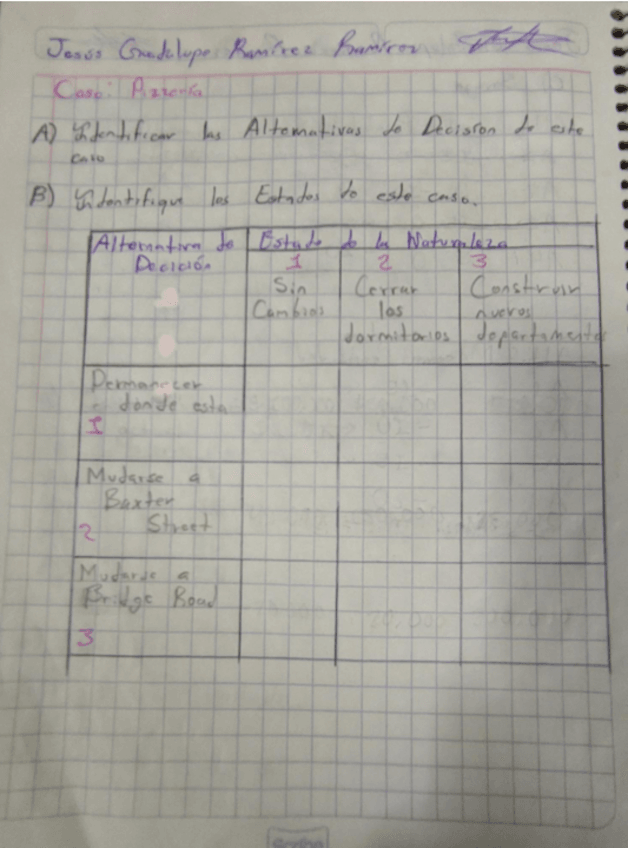 Jesús Guadalupe Ramírez Ramírez
Caso: Pizzería
A) Identificar las Alternativas de Decisión de este
caso
B) Identifique los Estados de este caso.
Alternativa de
Decición
Estado de la Naturaleza
1
2
3
Sin
Cambios
Cerrar
los
dormitorios
Construir
nuevos
departamentos
Permanecer
donde esta
1
Mudarse a
Baxter
Street
2
Mudarse a
Bridge Road
3
Scribe